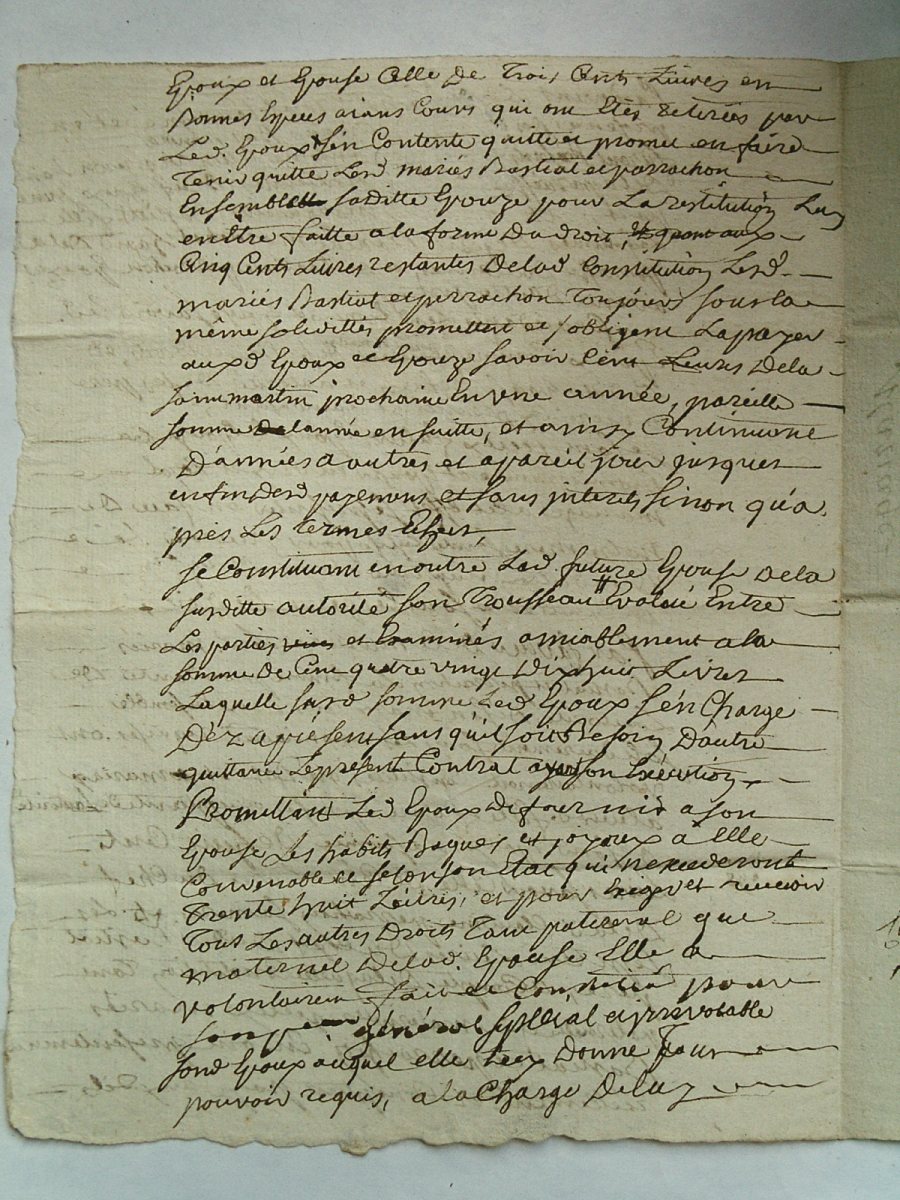 Epoux et Epouse Celle de Trois Cents Livres en
Bonnes Especes aians Cours qui ont Etés Retirées par
Led. Epoux S'en Contente quitte et promet en faire
Tenir quitte Lesd mariés Bastiat et perrachon
Ensemble saditte Epouze pour La restitution Luy
en Etre faitte a la forme Du droit, Et quant aux
Cinq Cents Livres restantes De lad Constitution Lesd.
mariés Bastiat et perrachon Toujours sous la
même solidittés promettent et s'obligent La payer
auxd Epoux et Epouze savoir Cent Livres De la
saint martin prochaine En une année, pareille
somme de lannée en suitte, et ainsy Continuant
D'années a autres et a pareil jour jusques
en fin desd payements et sans interets sinon qu'a
pres Les Termes Echus,
se Constituant en outre Lad. future Epouse de la
surditte autorité son Trousseau Evalué Entre
Les parties et Examinés amiablement a la
somme de Cent quatre vingt Dix huit Livres
Laquelle surd somme Led Epoux s'en Charge
Dez a présent sans qu'il soit Besoin D'autre
quittance Le present Contrat ayant son Exécution
Promettant Led Epoux De fournir a son
Epouse Les habits Bagues et joyaux a Elle
Convenable et selon son Etat qui n'excederont
Trente huit Livres, et pour Exiger et recevoir
Tous Les autres Droits Tant paternel que
maternel De lad. Epouse Elle a
volontairem fait et Constitué pour
son général spécial et irrevocable
sond Epoux auquel elle Donne Tour
pouvoir requis, a la Charge De luy